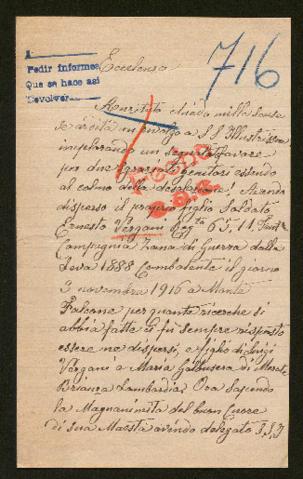 A
Pedir informes
Que se hace asi
Devolver
716
Eccelenza
chiedo mille scuse
S. S. Illustrissima
implorando un segnalato favore
per due disgraziati genitori essendo
al colmo della desolazione, Avendo
disperso il proprio figlio Soldato
Ernesto Vergani Regto 65, 11
Compagnia Zona di Guerra dalla
Leva 1888 Combatente il giorno
3 novembre 1916 a Monte
Falcone, per quante ricerche si
abbia fatte ci fu sempre risposto
essere ne dispersi, e figlio di Luigi
Vergani e Maria di Merate
Brianza Lombardia. Ora Sapendo
la Magnanimità del buon Cuore
di sua Maestà avendo delegato S.S.I